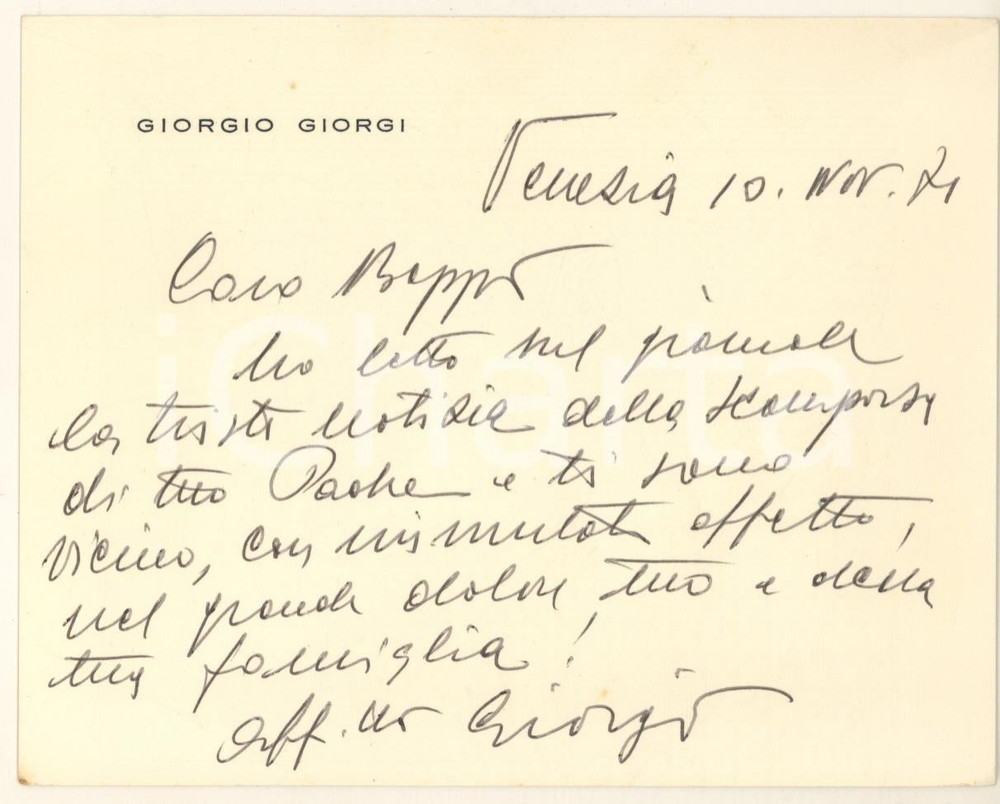 GIORGIO GIORGI
Venezia 10. Nov. 71
Caro Beppo
ho letto sul giornale
la triste notizia della scomparsa
di tuo Padre e ti sono
vicino, con immutato affetto,
nel grande dolore tuo e della
tua famiglia!
Aff.mo Giorgio
iCharta